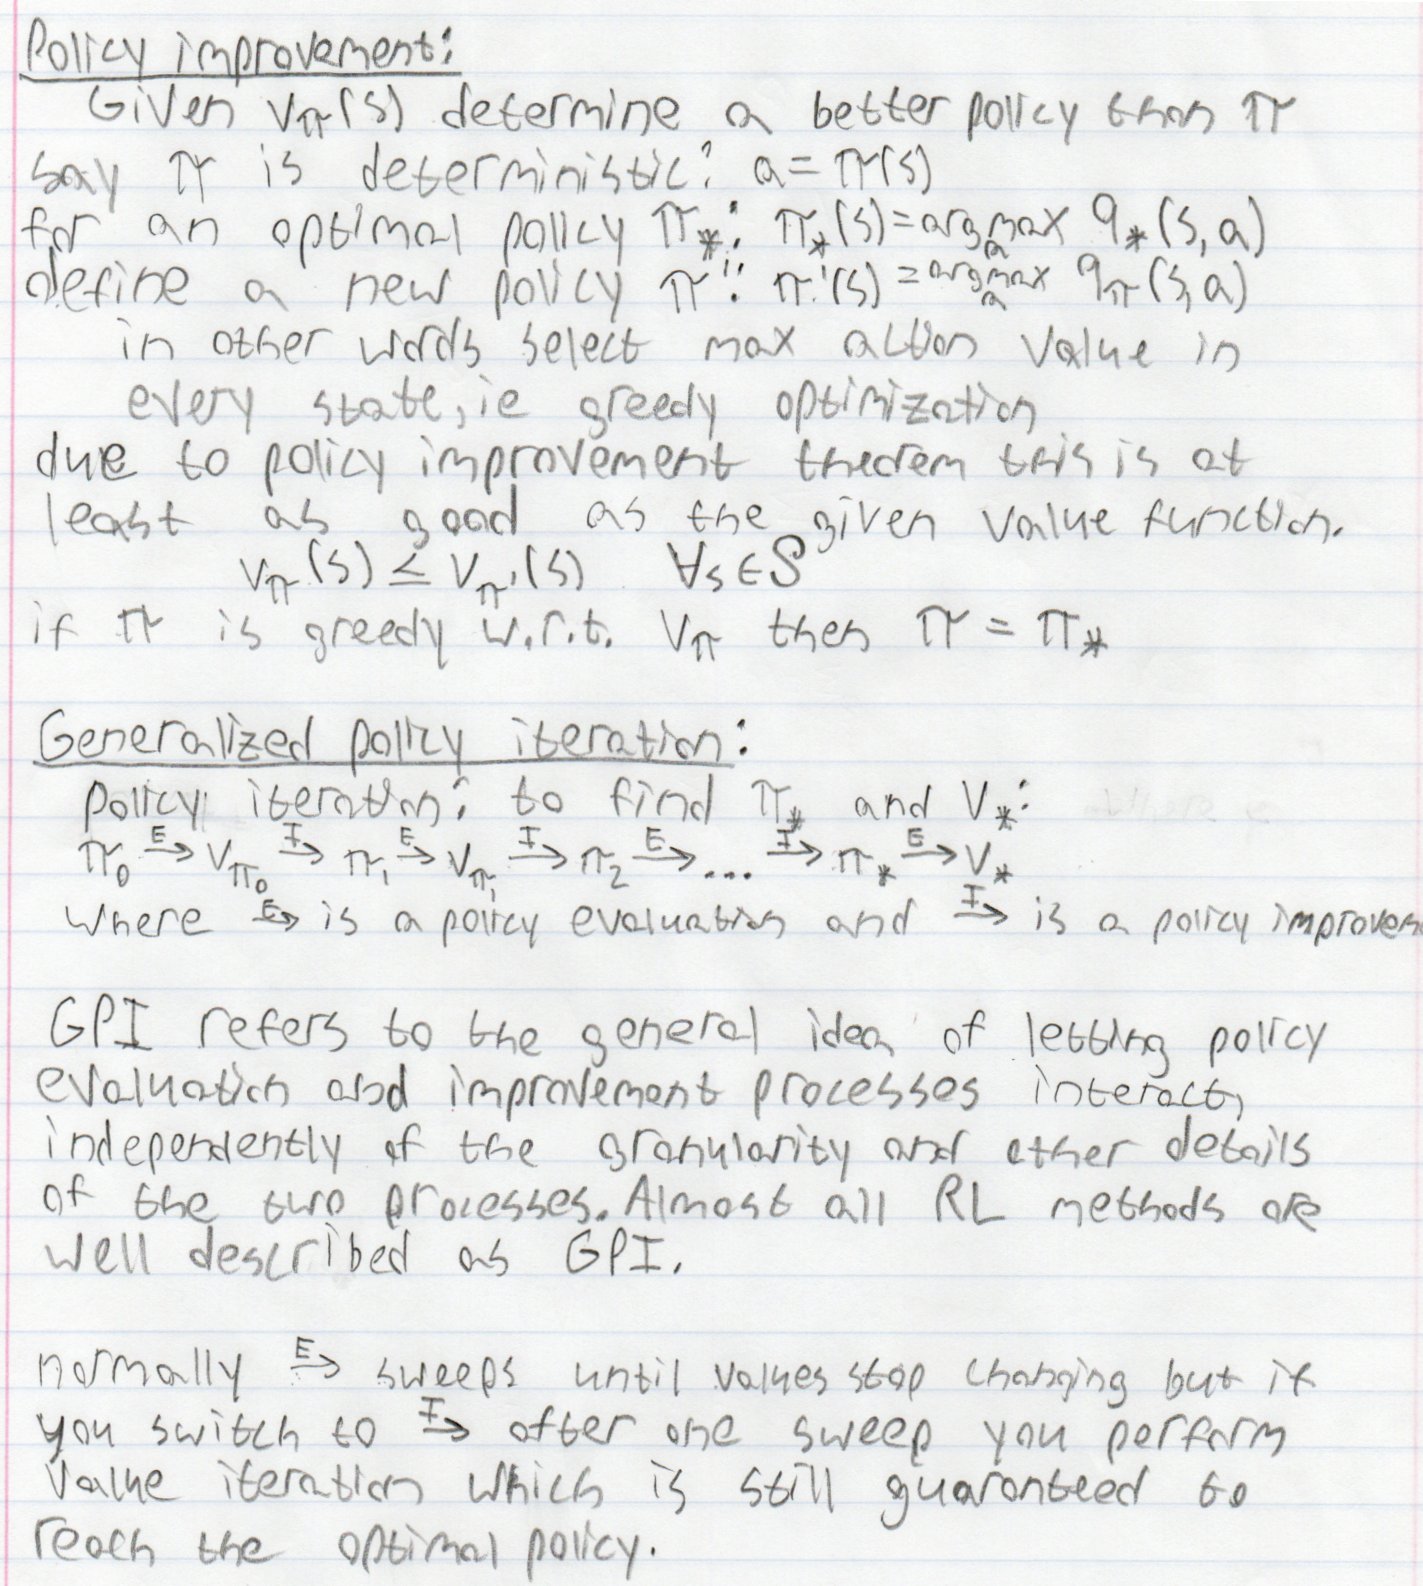 Policy improvement:
Given v_π(s) determine a better policy than π
say π is deterministic: a = π(s)
for an optimal policy π_*: π_*(s) = argmax_a q_*(s, a)
define a new policy π': π'(s) = argmax_a q_π(s, a)
in other words select max action value in
every state, ie greedy optimization
due to policy improvement theorem this is at
least as good as the given value function.
v_π(s) ≤ v_π'(s) ∀s ∈ S
if π is greedy w.r.t. v_π then π = π_*
Generalized policy iteration:
Policy iteration: to find π_* and v_*:
π_0 E→ v_π_0 I→ π_1 E→ v_π_1 I→ π_2 E→ ... I→ π_* E→ v_*
where E→ is a policy evaluation and I→ is a policy improvem
GPI refers to the general idea of letting policy
evaluation and improvement processes interact,
independently of the granularity and other details
of the two processes. Almost all RL methods are
well described as GPI.
normally E→ sweeps until values stop changing but if
you switch to I→ after one sweep you perform
value iteration which is still guaranteed to
reach the optimal policy.